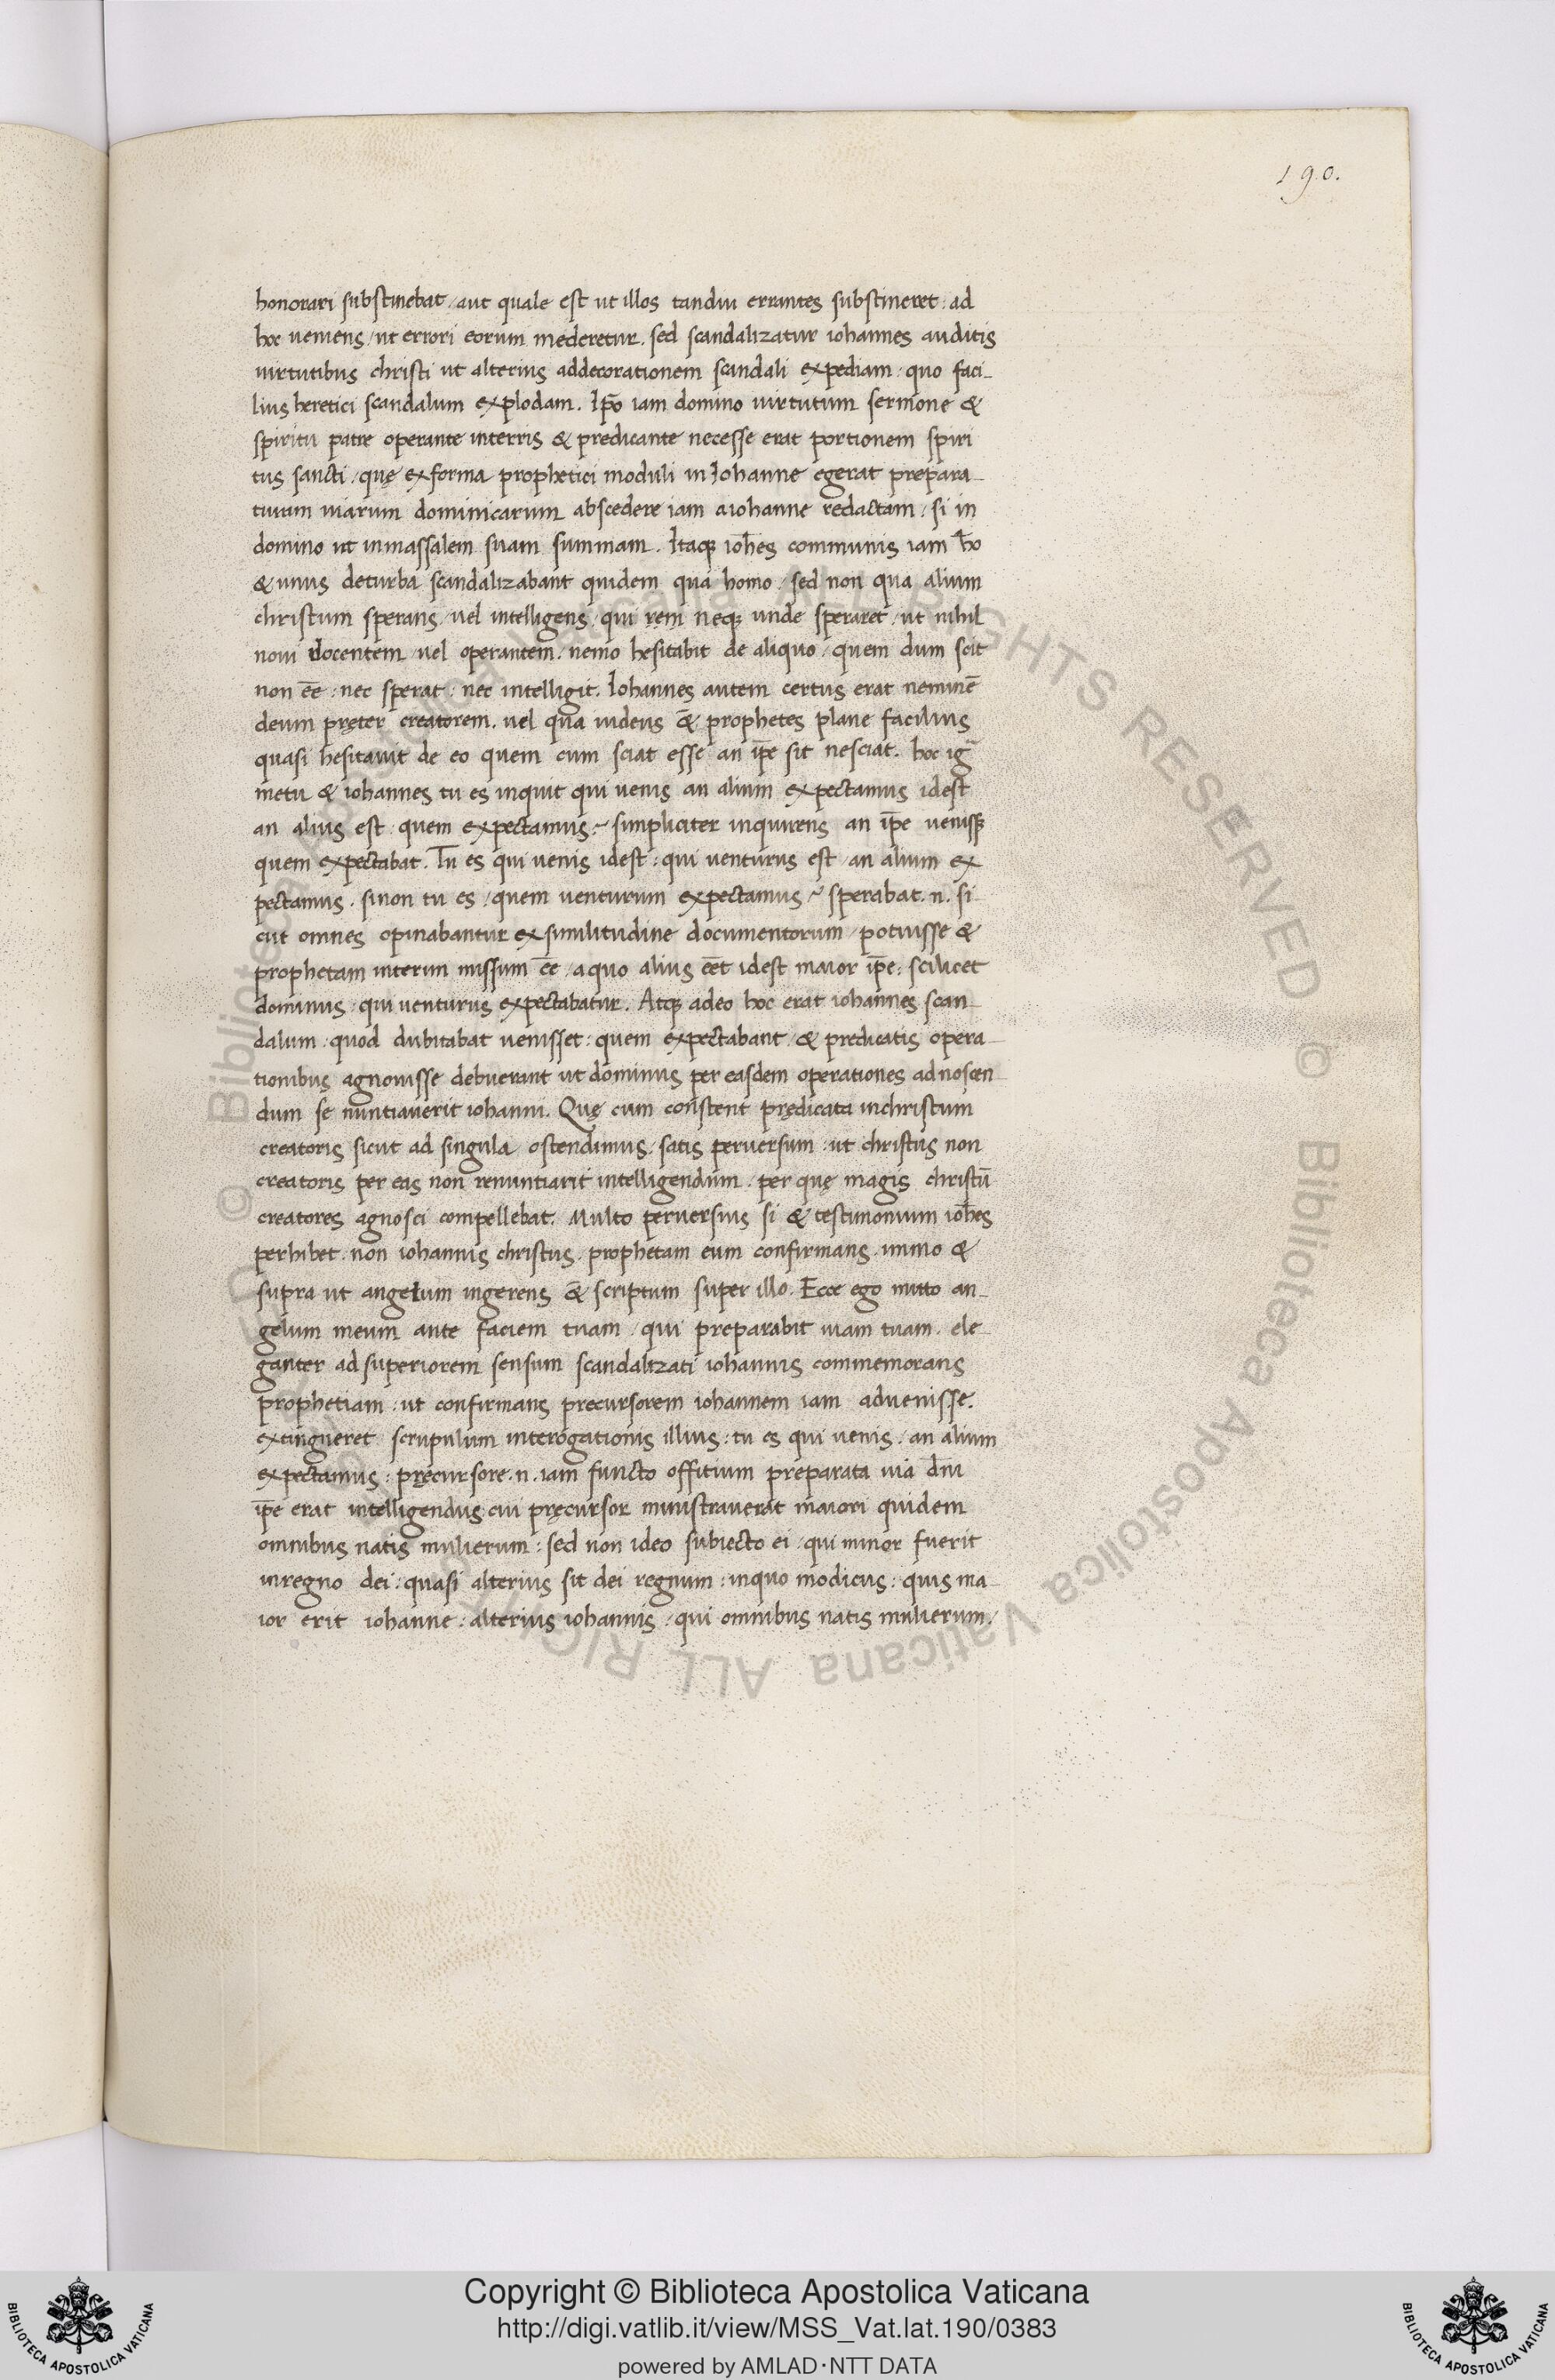 190.
honorari substinebat / aut quale est ut illos tandiu errantes substineret : ad
hoc ueniens / ut errori eorum mederetur . sed scandalizatur iohannes auditis
uirtutibus christi ut alterius addecorationem scandali expediam / quo faci-
lius heretici scandalum explodam . Ip̄o iam domino uirtutum sermone &
spiritu patre operante interris & predicante necesse erat portionem spiri
tus sancti / quę exforma prophetici moduli in Iohanne egerat prepara-
turam uiarum dominicarum abscedere iam aiohanne redactam / si in
domino ut inmassalem suam summam . Itaqꝫ ioh̄es communis iam h̄o
& unus deturba scandalizabant quidem qua homo / sed non qua alium
christum sperans / uel intelligens / qui rem neqꝫ unde speraret / ut nihil
noui docentem / uel operantem . nemo hesitabit de aliquo / quem dum scit
non ēe : nec sperat : nec intelligit . Iohannes autem certus erat neminē
deum pręter creatorem . uel qua iudeus & prophetes plane facilius
quasi hesitauit de eo quem cum sciat esse an ip̄e sit nesciat . hoc iḡ
metu & iohannes tu es inquit qui uenis an alium expectamus idest
an alius est quem expectamus ? simpliciter inquirens an ip̄e uenissꝫ
quem expectabat . Tu es qui uenis idest : qui uenturus est / an alium ex
pectamus . sinon tu es / quem uenturum expectamus ? sperabat . n . si
cut omnes opinabantur exsimilitudine documentorum / potuisse &
prophetam interim missum ēe / aquo alius ēet idest maior ip̄e : scilicet
dominus / qui uenturus expectabatur . Atqꝫ adeo hoc erat iohannes scan-
dalum / quod dubitabat uenisset : quem expectabant / & predicatis opera-
tionibus agnouisse debuerant ut dominus per easdem operationes adnoscen-
dum se nuntiauerit iohanni . Quę cum constent prędicata inchristum
creatoris sicut ad singula ostendimus / satis peruersum : ut christus non
creatoris per eas non renuntiarit intelligendum / per quę magis christū
creatores agnosci compellebat . Multo peruersius si & testimonium ioh̄es
perhibet / non iohannis christus / prophetam eum confirmans / immo &
supra ut angelum ingerens & scriptum super illo . Ecce ego mitto an-
gelum meum ante faciem tuam / qui preparabit uiam tuam . ele-
ganter adsuperiorem sensum scandalizati iohannis commemorans
prophetiam : ut confirmans precursorem iohannem iam aduenisse .
extingueret scrupulum interogationis illius : tu es qui uenis / an alium
expectamus : pręcursore . n . iam functo offitium preparata uia dn̄i
ip̄e erat intelligendus cui pręcursor ministrauerat maiori quidem
omnibus natis mulierum : sed non ideo subiecto ei / qui minor fuerit
inregno dei : quasi alterius sit dei regnum : inquo modicus : quis ma-
ior erit iohanne : alterius iohannis / qui omnibus natis mulierum /
Copyright © Biblioteca Apostolica Vaticana
http://digi.vatlib.it/view/MSS_Vat.lat.190/0383
powered by AMLAD·NTT DATA
BIBLIOTECA APOSTOLICA VATICANA
BIBLIOTECA APOSTOLICA VATICANA
© Biblioteca Apostolica Vaticana ALL RIGHTS RESERVED © Biblioteca Apostolica Vaticana ALL RIGHTS RESERVED